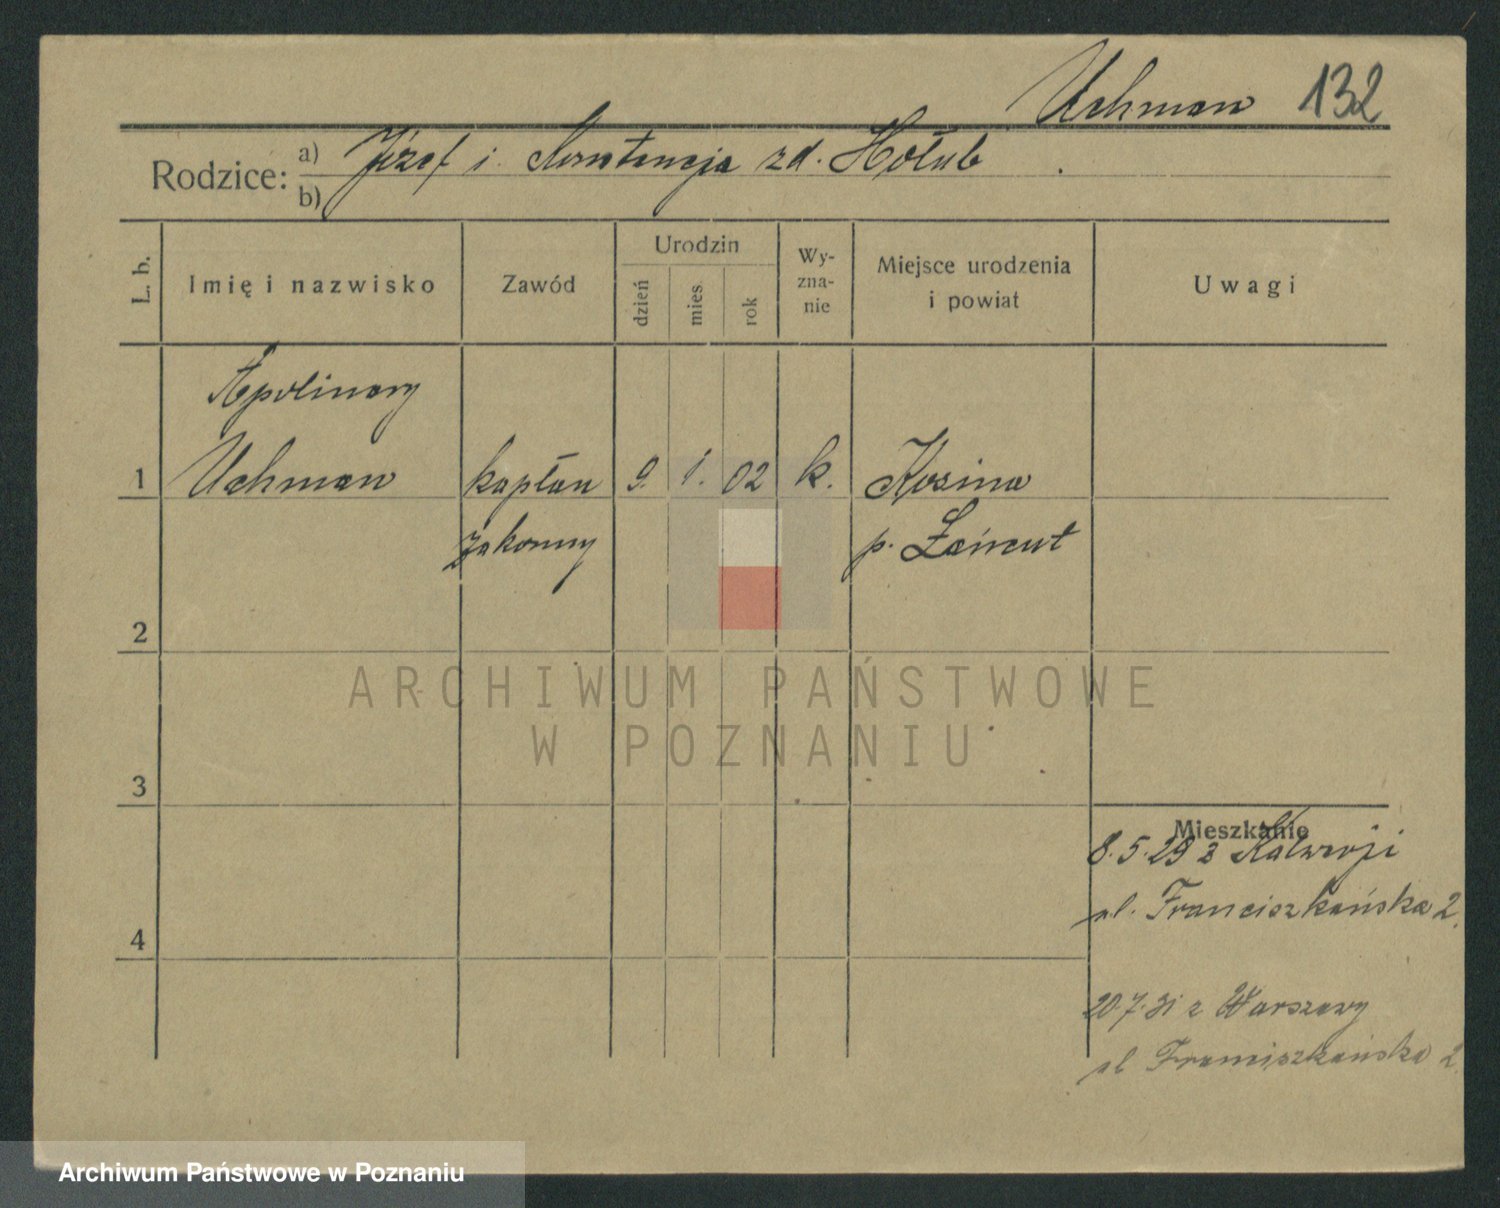 Uchman 132
Rodzice: a) Józef i Konstancja zd. Hołub
b)
L. b. Imię i nazwisko Zawód Urodzin dzień mies. rok Wy-zna-nie Miejsce urodzenia i powiat Uwagi
Apolinary
1 Uchman kapłan 9. 1. 02 k. Kosina
zakonny p. Łańcut
2
ARCHIWUM PAŃSTWOWE
W POZNANIU
3
Mieszkanie
8.5.29 z Kalwarji
ul. Franciszkańska 2.
4
20.7.31 z Warszawy
ul Franciszkańska 2.
Archiwum Państwowe w Poznaniu